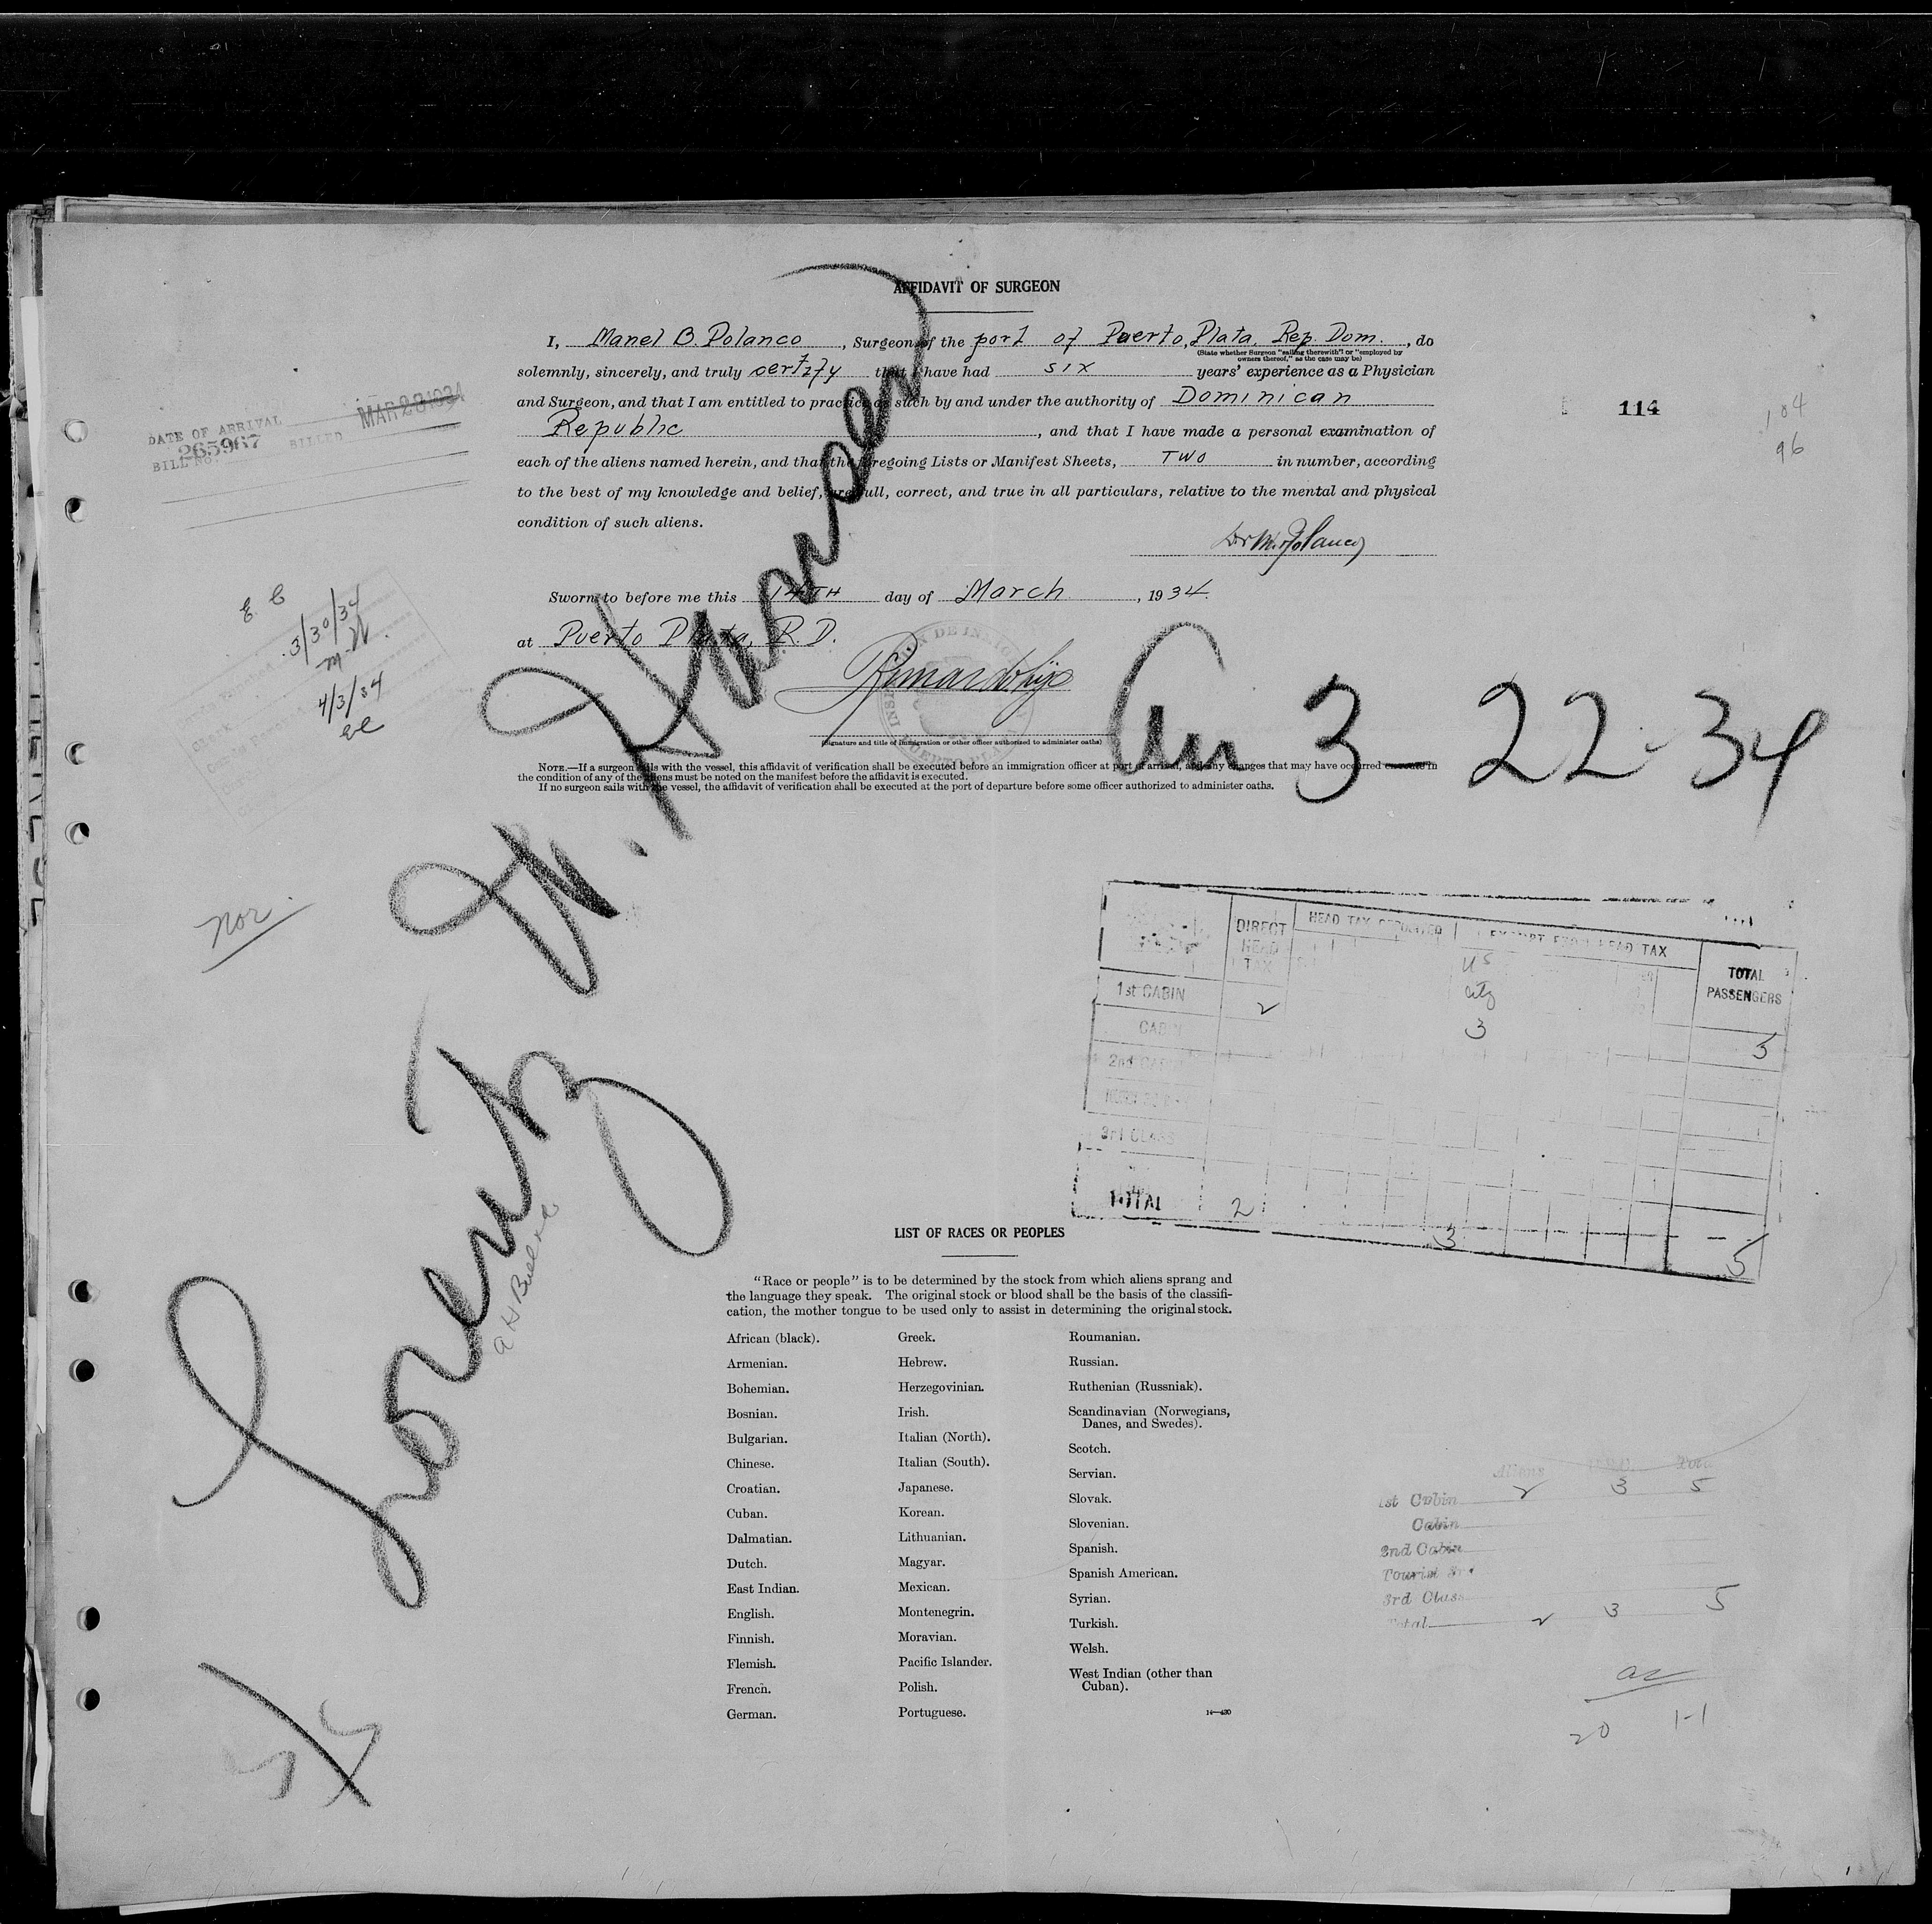 AFFIDAVIT OF SURGEON
I, Manel B. Polanco, Surgeon of the port of Puerto Plata, Rep. Dom., do
(State whether Surgeon "sailing therewith" or "employed by
owners thereof," as the case may be)
solemnly, sincerely, and truly certify that I have had six years' experience as a Physician
and Surgeon, and that I am entitled to practice as such by and under the authority of Dominican
Republic, and that I have made a personal examination of
each of the aliens named herein, and that the foregoing Lists or Manifest Sheets, TWO in number, according
to the best of my knowledge and belief, are full, correct, and true in all particulars, relative to the mental and physical
condition of such aliens.
Dr M. Polanco
Sworn to before me this 14TH day of March, 1934.
at Puerto Plata, R.D.
(Signature and title of Immigration or other officer authorized to administer oaths)
NOTE.—If a surgeon sails with the vessel, this affidavit of verification shall be executed before an immigration officer at port of arrival, and any changes that may have occurred en route in
the condition of any of the aliens must be noted on the manifest before the affidavit is executed.
If no surgeon sails with the vessel, the affidavit of verification shall be executed at the port of departure before some officer authorized to administer oaths.
DATE OF ARRIVAL
265967
BILL NO. BILLED MAR 28 1934
114
104
96
E. C
3/30/34
M.W.
4/3/34
EC
nor.
Lorentz W. Hansen
Arr 3-22-34
DIRECT HEAD TAX
HEAD TAX DEPOSITED
EXEMPT FROM HEAD TAX
TOTAL PASSENGERS
US
City
1st CABIN 2 3 5
CABIN
2nd CABIN
3rd CLASS
TOTAL 2 3 5
LIST OF RACES OR PEOPLES
"Race or people" is to be determined by the stock from which aliens sprang and
the language they speak. The original stock or blood shall be the basis of the classifi-
cation, the mother tongue to be used only to assist in determining the original stock.
African (black).
Armenian.
Bohemian.
Bosnian.
Bulgarian.
Chinese.
Croatian.
Cuban.
Dalmatian.
Dutch.
East Indian.
English.
Finnish.
Flemish.
French.
German.
Greek.
Hebrew.
Herzegovinian.
Irish.
Italian (North).
Italian (South).
Japanese.
Korean.
Lithuanian.
Magyar.
Mexican.
Montenegrin.
Moravian.
Pacific Islander.
Polish.
Portuguese.
Roumanian.
Russian.
Ruthenian (Russniak).
Scandinavian (Norwegians,
Danes, and Swedes).
Scotch.
Servian.
Slovak.
Slovenian.
Spanish.
Spanish American.
Syrian.
Turkish.
Welsh.
West Indian (other than
Cuban).
14—430
Aliens U.S.C. Total
1st Cabin 2 3 5
Cabin
2nd Cabin
Tourist 3rd
3rd Class
Total 2 3 5
20 1-1